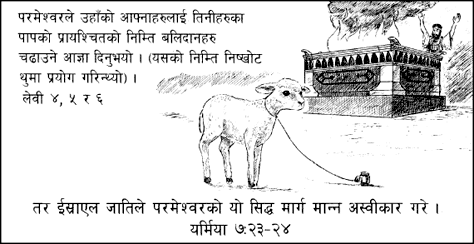 परमेश्वरले उहाँको आफ्नाहरुलाई तिनीहरुका
पापको प्रायश्चितको निम्ति बलिदानहरु
चढाउने आज्ञा दिनुभयो । (यसको निम्ति निष्खोट
थुमा प्रयोग गरिन्थ्यो) ।
लेवी ४, ५ र ६
तर ईस्राएल जातिले परमेश्वरको यो सिद्ध मार्ग मान्न अस्वीकार गरे ।
यर्मिया ७:२३-२४